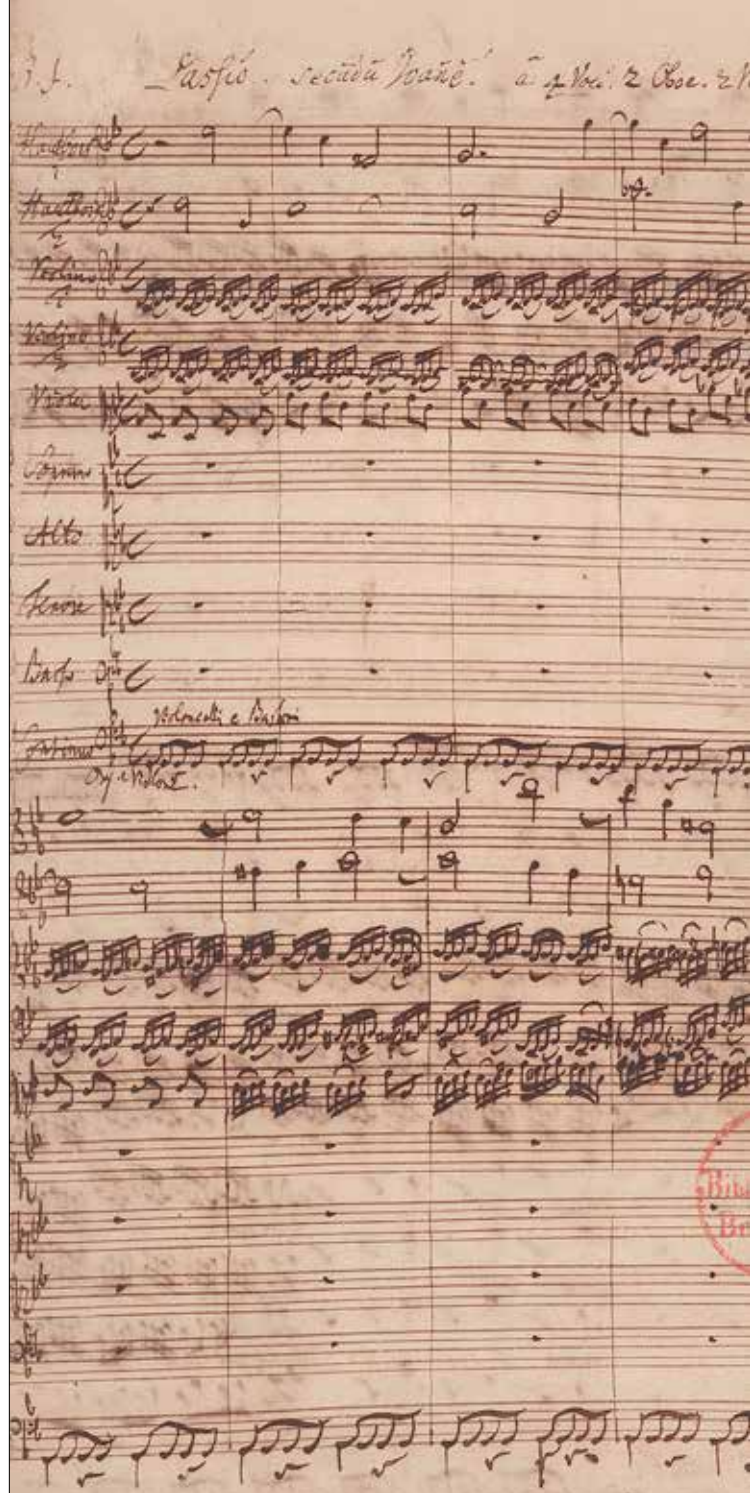 J. J. Passio. secundu Joane. à 4 Voci. 2 Oboe. 2 V
Hautbois
1
Hautbois
2
Violino
1
Violino
2
Viola
Soprano
Alto
Tenore
Basso
Violoncelli e Bassoni
Continuo
Org. e Violone.
Bibl
Be